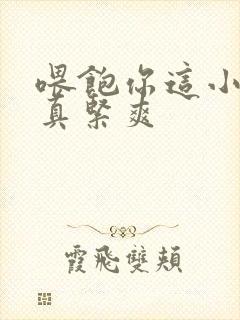 喂飽你這小
真緊爽
霞飛雙頰